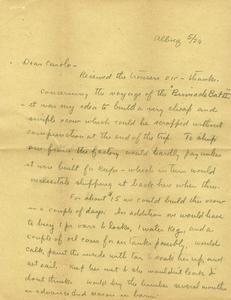 Albury 5/24
Dear Carolo -
Received the trousers O.K. - thanks.
Concerning the voyage of the
- it was my idea to build a very cheap and
simple scow which could be scrapped without
compunction at the end of the trip. To ship
one from the factory would hardly pay unless
it was built for keeps - which in turn would
necessitate shipping it back here when thru.
For about $15 we could build this scow
- a couple of days. In addition we would have
to buy 1 pr oars & locks, 1 water keg, and a
couple of oil cases for tanks possibly. would
calk, paint the inside with tar & soak her up, and
set sail. Keep her wet & she wouldn't leak I
don't think. would buy the lumber several months
in advance and season in barn.